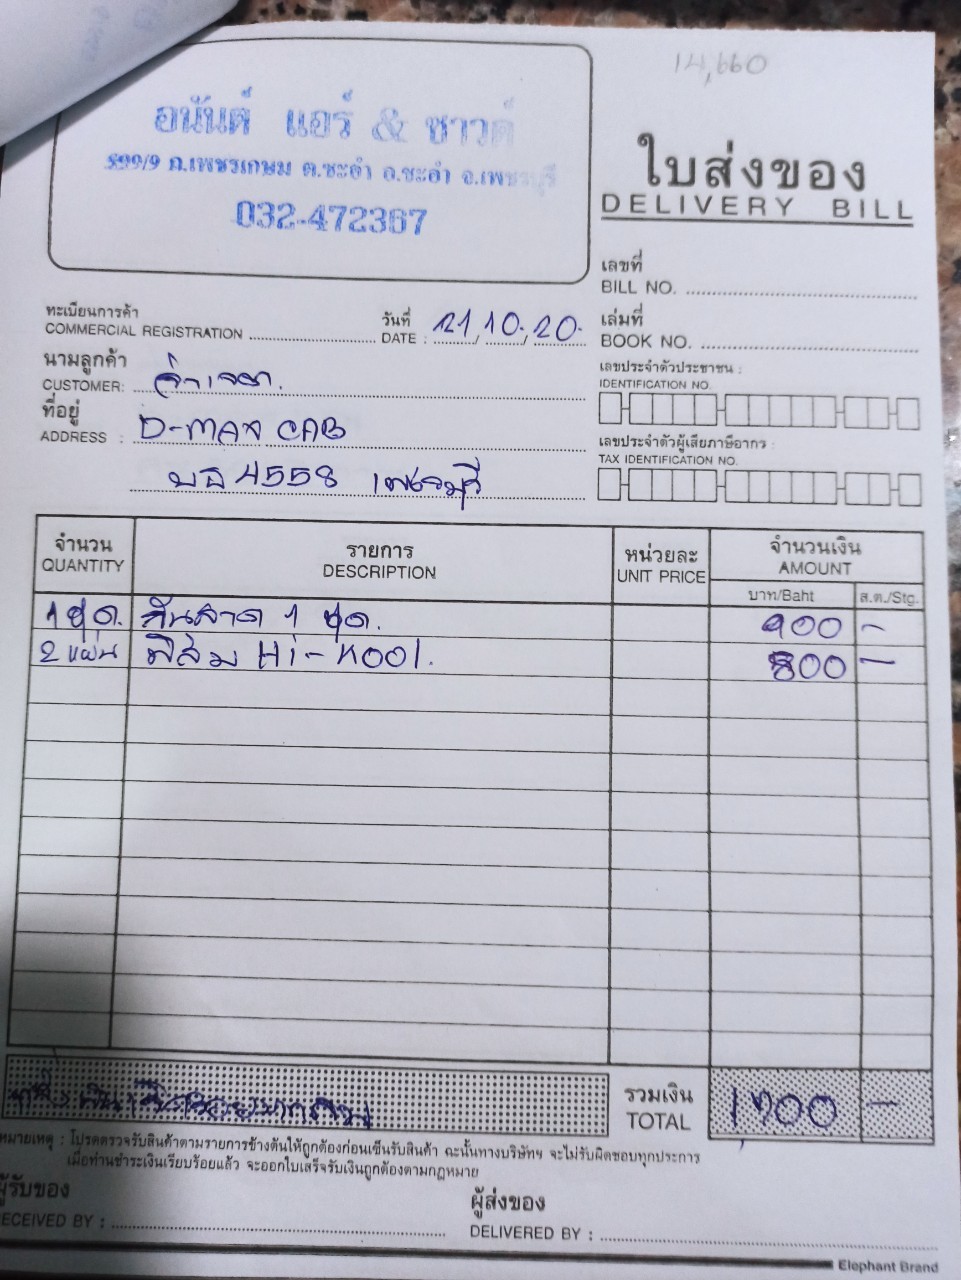 14,660
อนันต์ แอร์ & ซาวด์
899/9 ถ.เพชรเกษม ต.ชะอำ อ.ชะอำ จ.เพชรบุรี
032-472367
ใบส่งของ
DELIVERY BILL
เลขที่
BILL NO.
ทะเบียนการค้า
COMMERCIAL REGISTRATION
วันที่
DATE : 21/10/20
เล่มที่
BOOK NO.
นามลูกค้า
CUSTOMER:
เลขประจำตัวประชาชน :
IDENTIFICATION NO.
ที่อยู่
ADDRESS : D-MAX CAB
4558 เพชรบุรี
เลขประจำตัวผู้เสียภาษีอากร :
TAX IDENTIFICATION NO.
จำนวน
QUANTITY
รายการ
DESCRIPTION
หน่วยละ
UNIT PRICE
จำนวนเงิน
AMOUNT
บาท/Baht ส.ต./Stg.
1 ชุด. กันสาด 1 ชุด. 900 -
2 แผ่น Hi-Kool. 800 -
รวมเงิน
TOTAL 1,700 -
หมายเหตุ : โปรดตรวจรับสินค้าตามรายการข้างต้นให้ถูกต้องก่อนเซ็นรับสินค้า ฉะนั้นทางบริษัทฯ จะไม่รับผิดชอบทุกประการ
เมื่อท่านชำระเงินเรียบร้อยแล้ว จะออกใบเสร็จรับเงินถูกต้องตามกฎหมาย
ผู้รับของ
RECEIVED BY :
ผู้ส่งของ
DELIVERED BY :
Elephant Brand